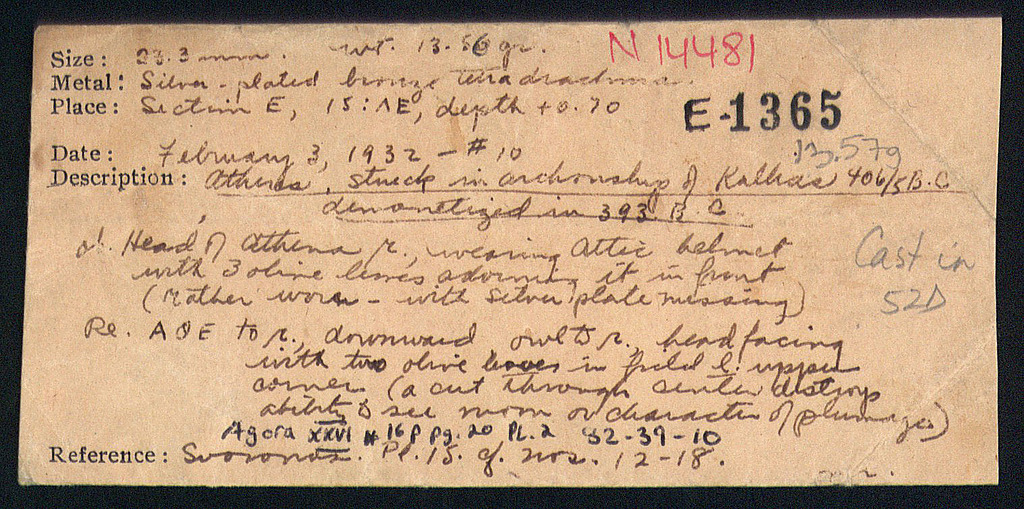 Size: 23.3 mm. wt. 13.56 gr. N 14481
Metal: Silver-plated bronze tetradrachma.
Place: Section E, 15:ΛE, depth +0.70
E-1365
Date: February 3, 1932 - #10
13.57g
Description: Athens, struck in archonship of Kallias 406/5 B.C
demonetized in 393 B.C.
Head of Athena r., wearing Attic helmet
with 3 olive leaves adorning it in front
(rather worn - with silver plate missing)
Cast in
52D
Re. ΑΘΕ to r., downward owl to r., head facing
with two olive leaves in field l. upper
corner (a cut through center destroys
ability to see moon or character of plumage)
Agora XXVI # 16p pg. 20 Pl. 2 82-39-10
Reference: Svoronos. Pl. 15. cf. nos. 12-18.